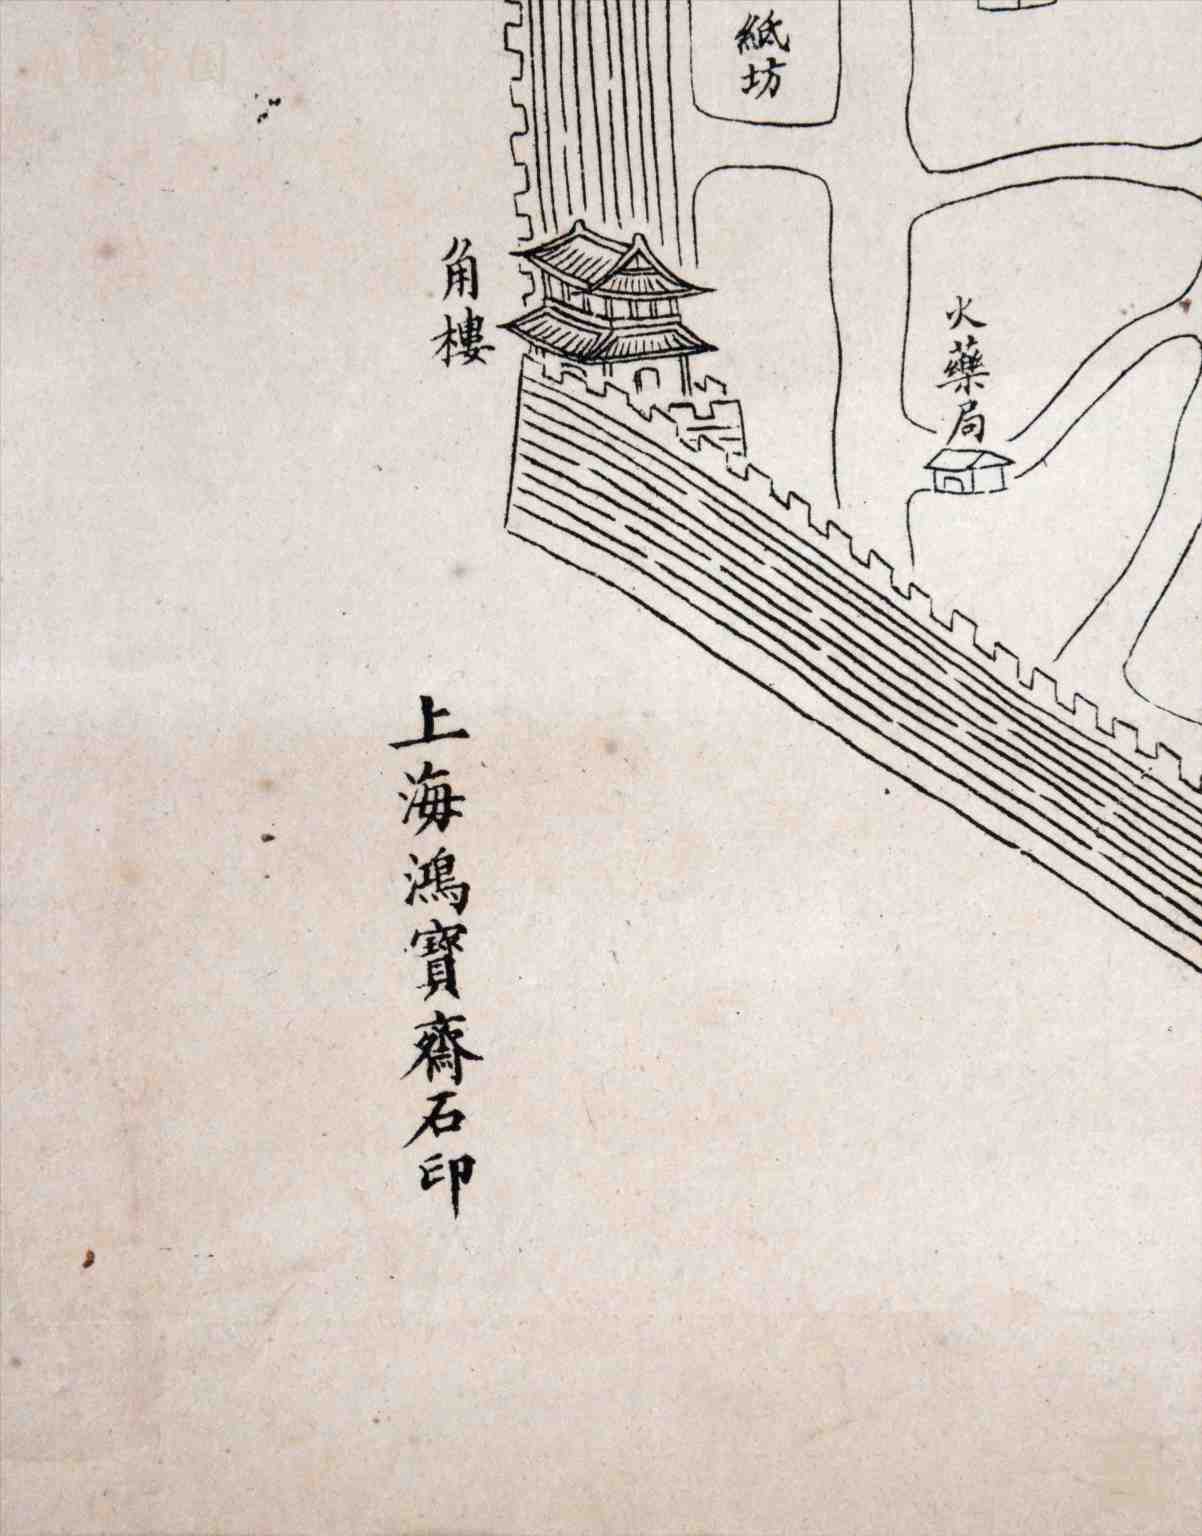 紙坊
角樓
火藥局
上海鴻寶齋石印